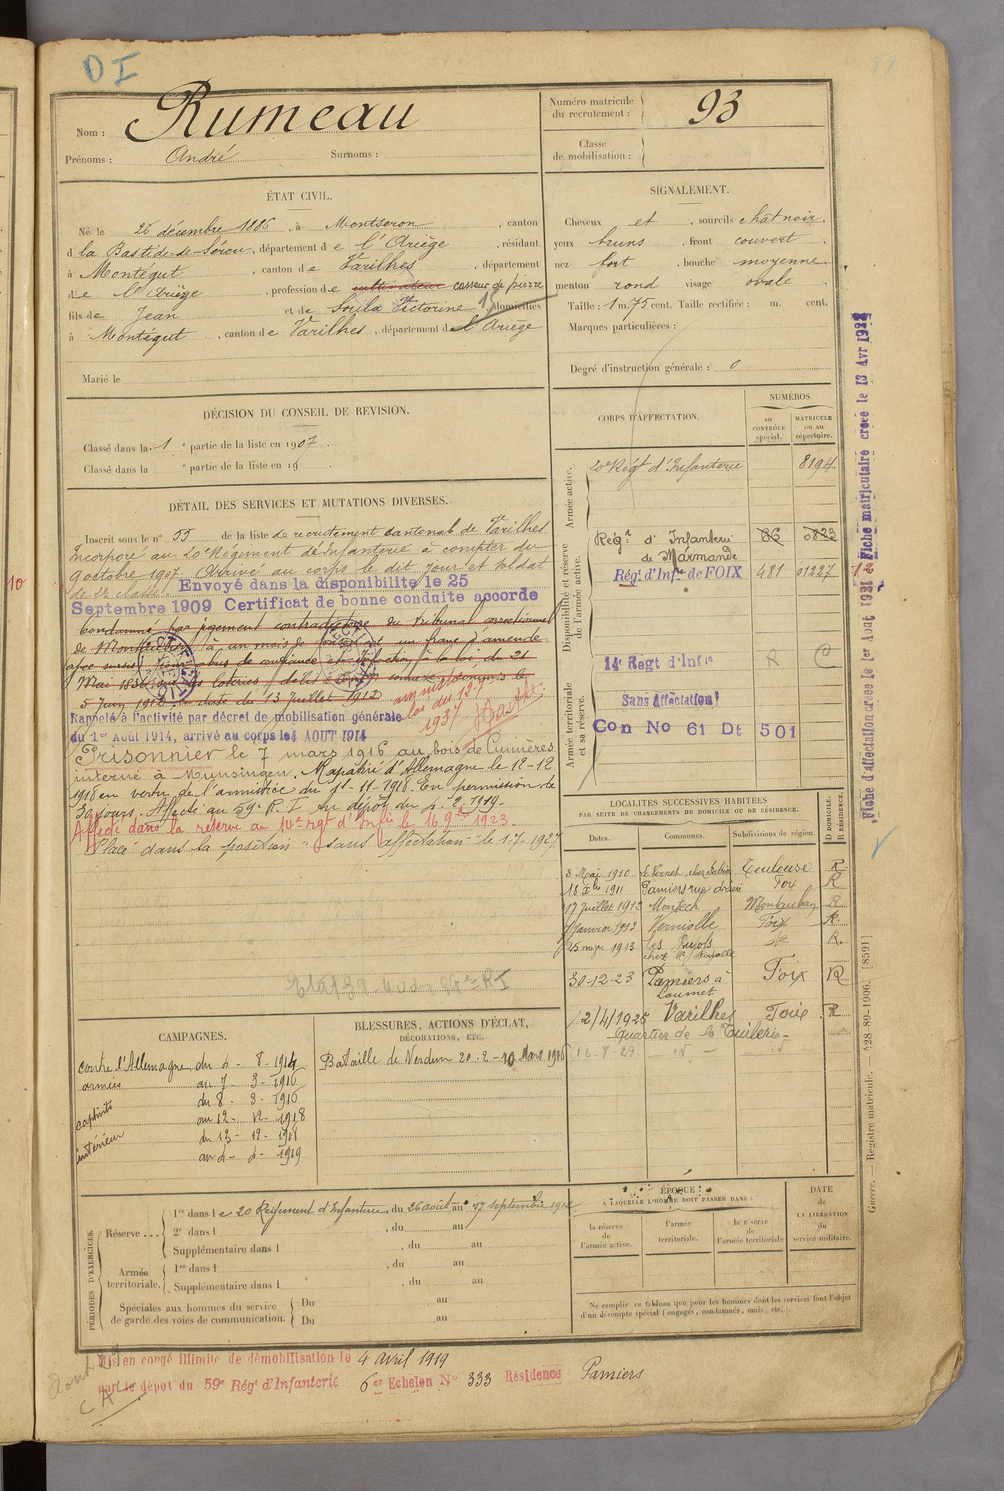 D I
Nom : Rumeau
Prénoms : André Surnoms :
Numéro matricule du recrutement : 93
Classe de mobilisation :
ÉTAT CIVIL.
Né le 26 décembre 1886, à Montseron, canton
d la Bastide-de-Sérou, département de l'Ariège, résidant
à Montégut, canton de Varilhes, département
de l'Ariège, profession de cultivateur casseur de pierre
fils de Jean et de Soula Victorine domiciliés
à Montégut, canton de Varilhes, département de l'Ariège
Marié le
SIGNALEMENT.
Cheveux et, sourcils chât noir.
yeux bruns, front couvert
nez fort, bouche moyenne
menton rond visage ovale
Taille : 1 m. 75 cent. Taille rectifiée : m. cent.
Marques particulières :
Degré d'instruction générale : 0
DÉCISION DU CONSEIL DE REVISION.
Classé dans la 1 e partie de la liste en 1907.
Classé dans la e partie de la liste en 19
DÉTAIL DES SERVICES ET MUTATIONS DIVERSES.
Inscrit sous le n° 55 de la liste de recrutement cantonal de Varilhes
Incorporé au 20e Régiment d'Infanterie à compter du
9 octobre 1907. Arrivé au corps le dit jour et soldat
de 2e classe. Envoyé dans la disponibilité le 25
Septembre 1909 Certificat de bonne conduite accordé
Condamné par jugement contradictoire du Tribunal correctionnel
de à un mois de un franc d'amende
avec sursis abus de confiance et infraction à la loi du 21
Mai 1836 sur les loteries, délit commis le
5 Juin 1912 en date du 13 Juillet 1912 amnistié
loi du 12-7
1937
Rappelé à l'activité par décret de mobilisation générale
du 1er Août 1914, arrivé au corps le 4 AOUT 1914
Prisonnier le 7 mars 1916 au bois de Cumières
interné à Munsingen. Rapatrié d'Allemagne le 12-12
1918 en vertu de l'armistice du 11-11-1918. En permission de
30 jours. Affecté au 59e R. I. dépôt du 4. 2. 1919.
Affecté dans la réserve au 14e rgt d'Infie le 16 9bre 1923
Placé dans la position "sans affectation" le 1.7.1927
CORPS D'AFFECTATION.
NUMÉROS
au CONTRÔLE spécial.
MATRICULE ou au répertoire.
Armée active.
20e Régt d'Infanterie 8194
Disponibilité et réserve de l'armée active.
Régt d'Infanterie de Marmande 86 0823
Régt d'Infrie de FOIX 481 01227
14e Regt d'Infie R C
Armée territoriale et sa réserve.
Sans Affectation
Con No 61 Dt 501
LOCALITÉS SUCCESSIVES HABITÉES
PAR SUITE DE CHANGEMENTS DE DOMICILE OU DE RÉSIDENCE.
Dates. Communes. Subdivisions de région. D DOMICILE. R RÉSIDENCE.
8 Mai 1910 le Vernet, chez Toulouse R.
18 Xbre 1911 Pamiers rue Foix R
17 Juillet 1913 Montech Montauban R
Janvier 1913 Verniolle Foix R.
25 mars 1913 Les Pujols R.
30-12-23 Pamiers à Loumet Foix R
2/4/1925 Varilhes Foix R
Quartier de la Tuilerie
16-8-29
CAMPAGNES.
contre l'Allemagne du 4 - 8 - 1914
armées au 7 - 3 - 1916
du 8 - 3 - 1916
captivité au 12 - 12 - 1918
du 13 - 12 - 1918
intérieur au 4 - 4 - 1919
BLESSURES, ACTIONS D'ÉCLAT,
DÉCORATIONS, ETC.
Bataille de Verdun 20-2-10 Mars 1916
PÉRIODES D'EXERCICES.
Réserve ...
1re dans le 20 Régiment d'Infanterie, du 26 août au 17 septembre 1912
2e dans l , du au
Supplémentaire dans l , du au
Armée territoriale.
1re dans l , du au
Supplémentaire dans l , du au
Spéciales aux hommes du service de garde des voies de communication.
Du au
Du au
ÉPOQUE :
À LAQUELLE L'HOMME DOIT PASSER DANS :
la réserve de l'armée active.
l'armée territoriale.
la réserve de l'armée territoriale
DATE de LA LIBÉRATION du service militaire.
Ne remplir ce tableau que pour les hommes dont les services font l'objet
d'un décompte spécial (engagés, condamnés, omis, etc.).
Mis en congé illimité de démobilisation le 4 avril 1919
par le dépôt du 59e Régt d'Infanterie 6er Echelon N° 333 Résidence Pamiers
Fiche d'affectation créée le 1er Aout 1921
Fiche matriculaire créée le 13 Avr 1922
Guerre. Registre matricule. 428-89-1906. [8591]
10